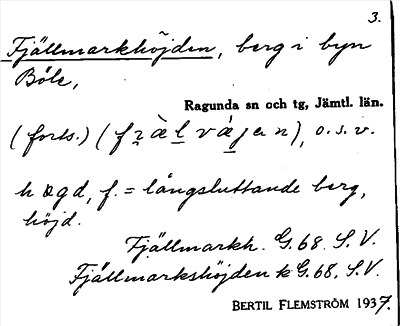 3.
Fjällmarkhöjden, berg i byn
Böle,
Ragunda sn och tg, Jämtl. län.
(forts.) ( o.s.v.
f. = långsluttande berg,
höjd.
Fjällmarkh. G. 68. S. V.
Fjällmarkshöjden k G. 68. S. V.
BERTIL FLEMSTRÖM 1937.